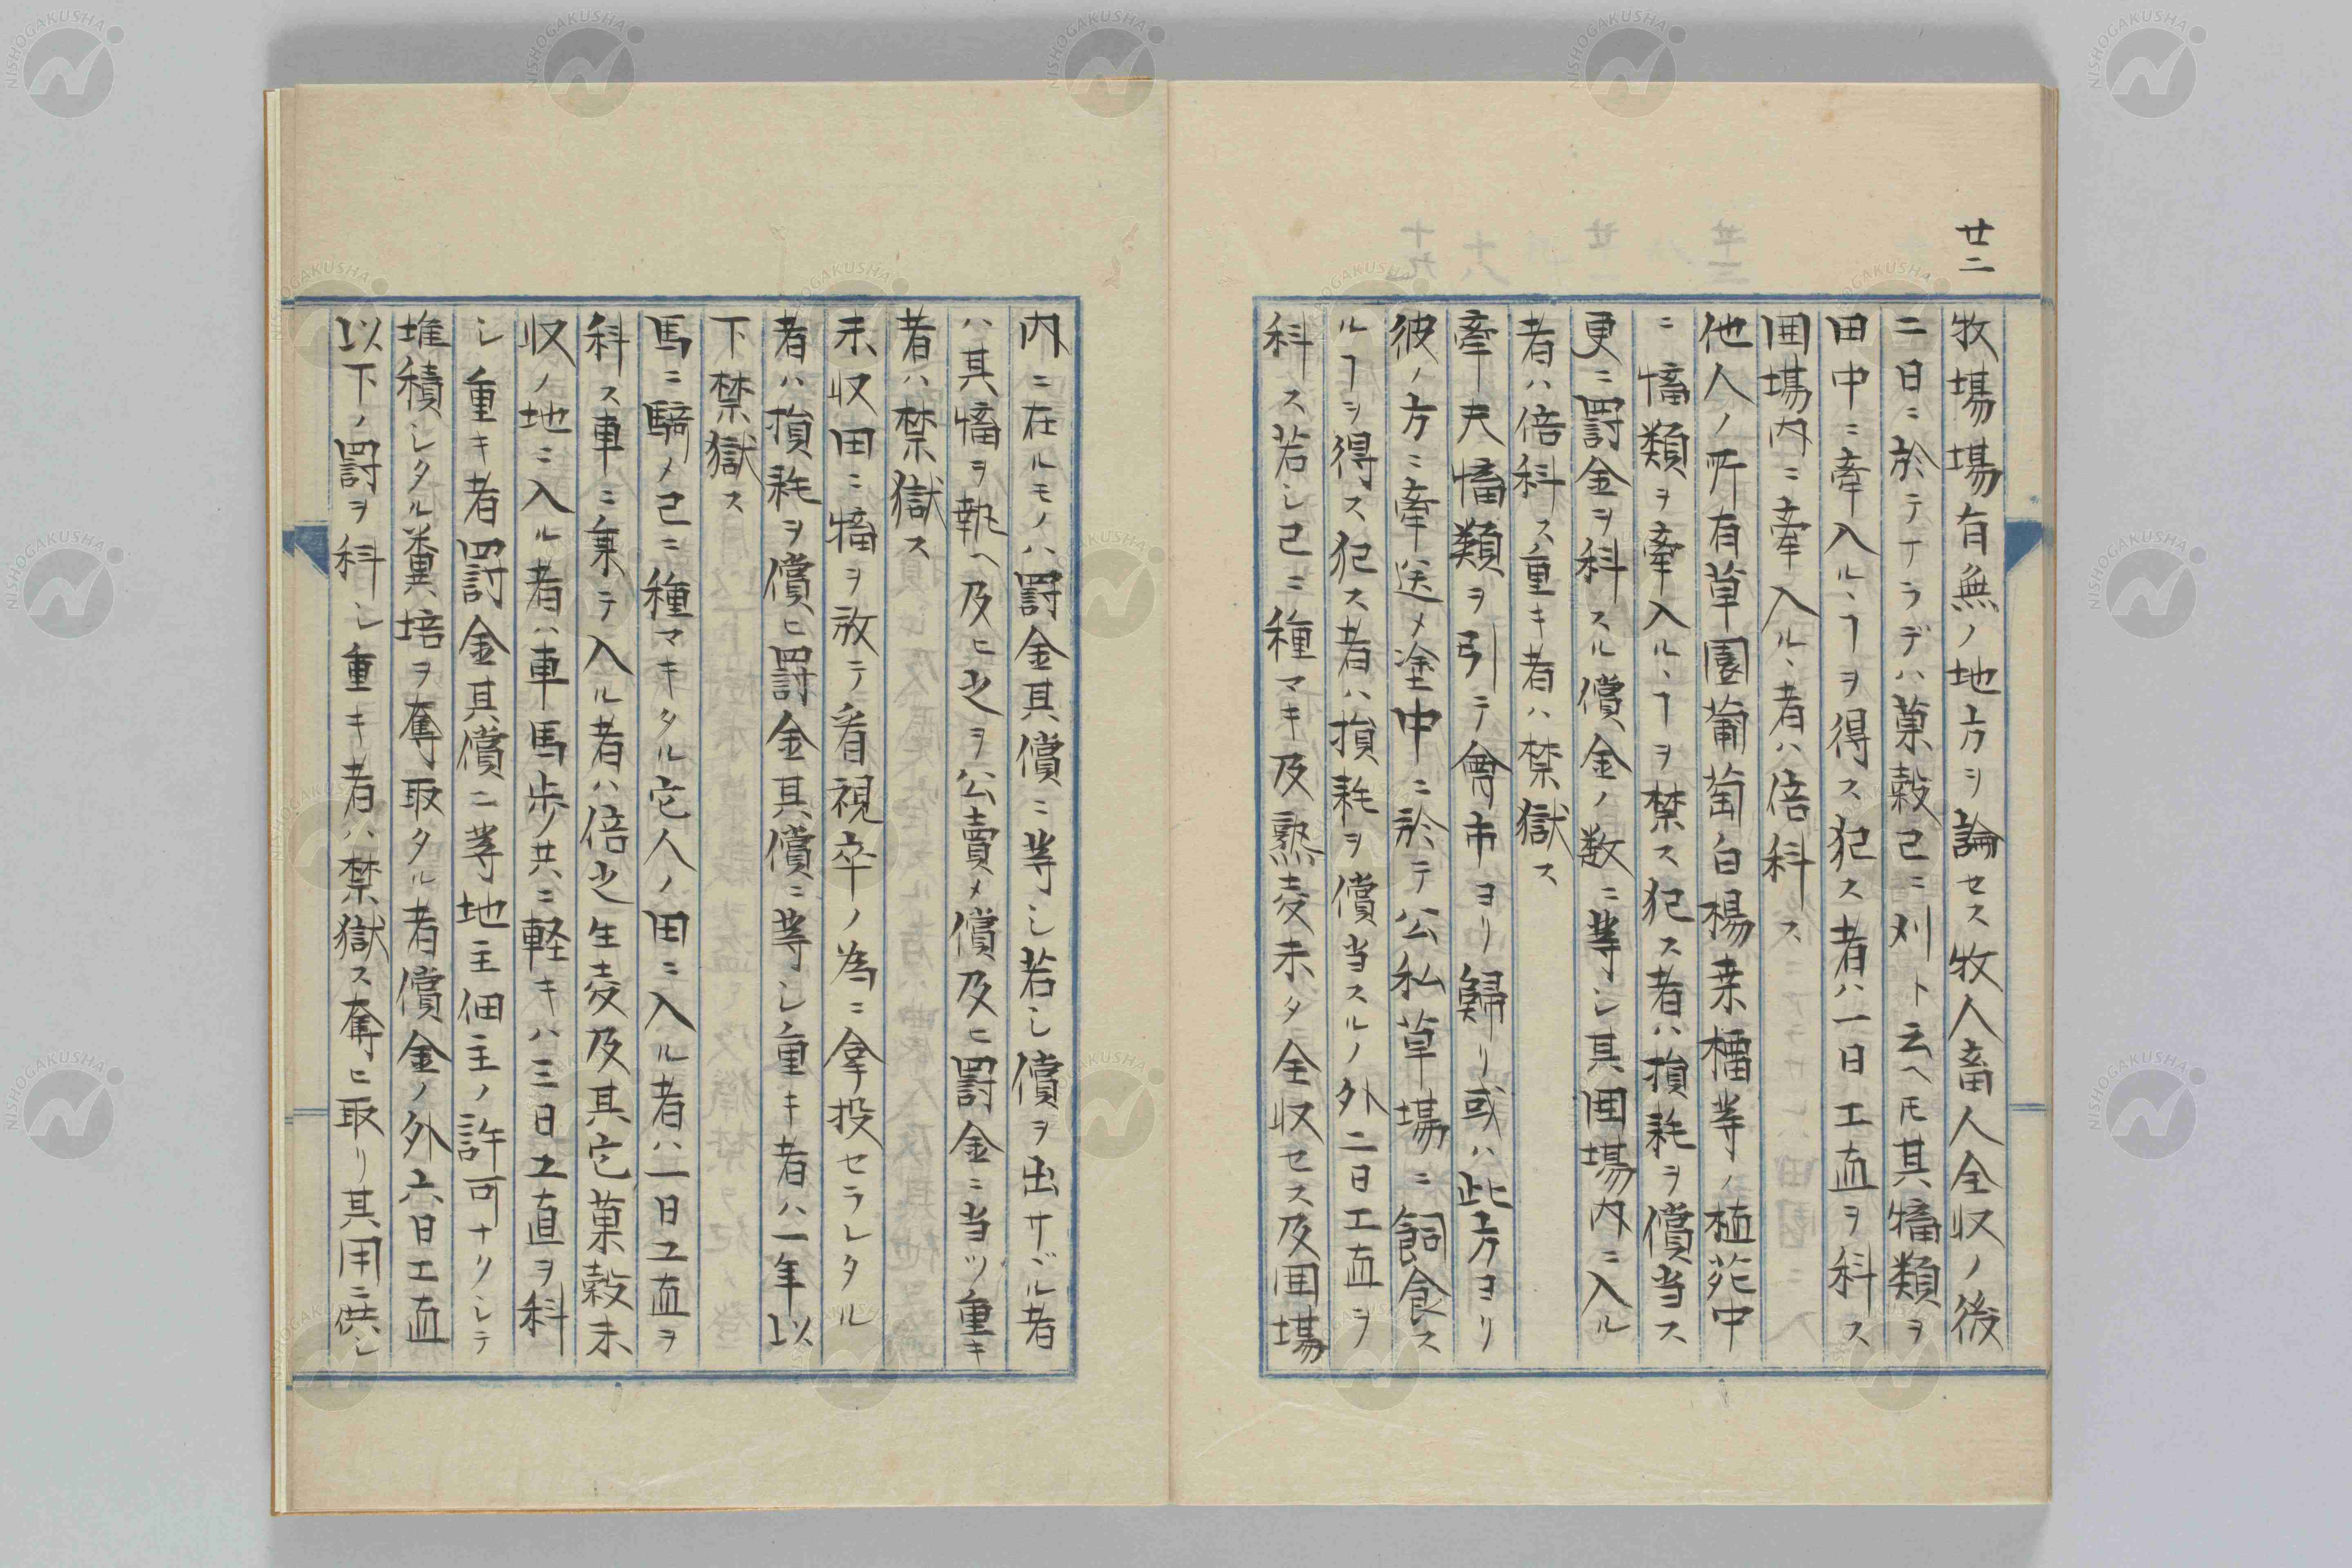 廿二
牧場場有無ノ地方ヲ論セス牧人畜人全収ノ後
二日ニ於テナラデハ菓穀已ニ刈ト云ヘ𪜈其犗類ヲ
田中ニ牽入ル丶ヿヲ得ス犯ス者ハ一日工直ヲ科ス
囲場内ニ牽入ル丶者ハ倍科ス
他人ノ所有草園葡萄白楊桒櫺等ノ植苑中
ニ犗類ヲ牽入ル丶ヿヲ禁ス犯ス者ハ損耗ヲ償当ス
更ニ罰金ヲ科スル償金ノ数ニ等シ其囲場内ニ入ル
者ハ倍科ス重キ者ハ禁獄ス
牽夫犗類ヲ引テ會市ヨリ歸リ或ハ此方ヨリ
彼ノ方ニ牽送メ塗中ニ於テ公私草場ニ飼食ス
ルヿヲ得ス犯ス者ハ損耗ヲ償当スルノ外二日工直ヲ
科ス若シ已ニ種マキ及熟麦未タ全収セス及囲場
内ニ在ルモノハ罰金其償ニ等シ若シ償ヲ出サヾル者
ハ其犗ヲ執ヘ及ヒ之ヲ公賣メ償及ヒ罰金ニ当ツ重キ
者ハ禁獄ス
未収田ニ犗ヲ放テ看視卒ノ為ニ拿投セラレタル
者ハ損耗ヲ償ヒ罰金其償ニ等シ重キ者ハ一年以
下禁獄ス
馬ニ騎メ已ニ種マキタル它人ノ田ニ入ル者ハ一日工直ヲ
科ス車ニ乗テ入ル者ハ倍之生麦及其它菓穀未
収ノ地ニ入ル者ハ車馬歩共ニ軽キハ三日工直ヲ科
シ重キ者罰金其償ニ等地主佃主ノ許可ナクシテ
堆積シタル糞培ヲ奪取タル者償金ノ外六日工直
以下ノ罰ヲ科シ重キ者ハ禁獄ス奪ヒ取リ其用ニ供シ